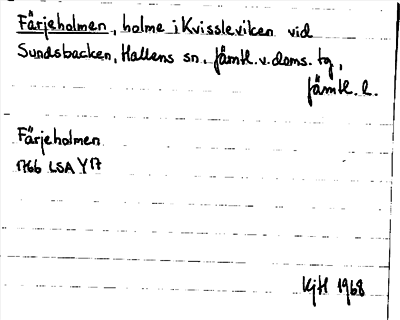 Färjeholmen, holme i Kvissleviken vid
Sundsbacken, Hallens sn, Jämtl. v. doms. tg,
Jämtl. l.
Färjeholmen
1766 LSA Y17
KjH 1968